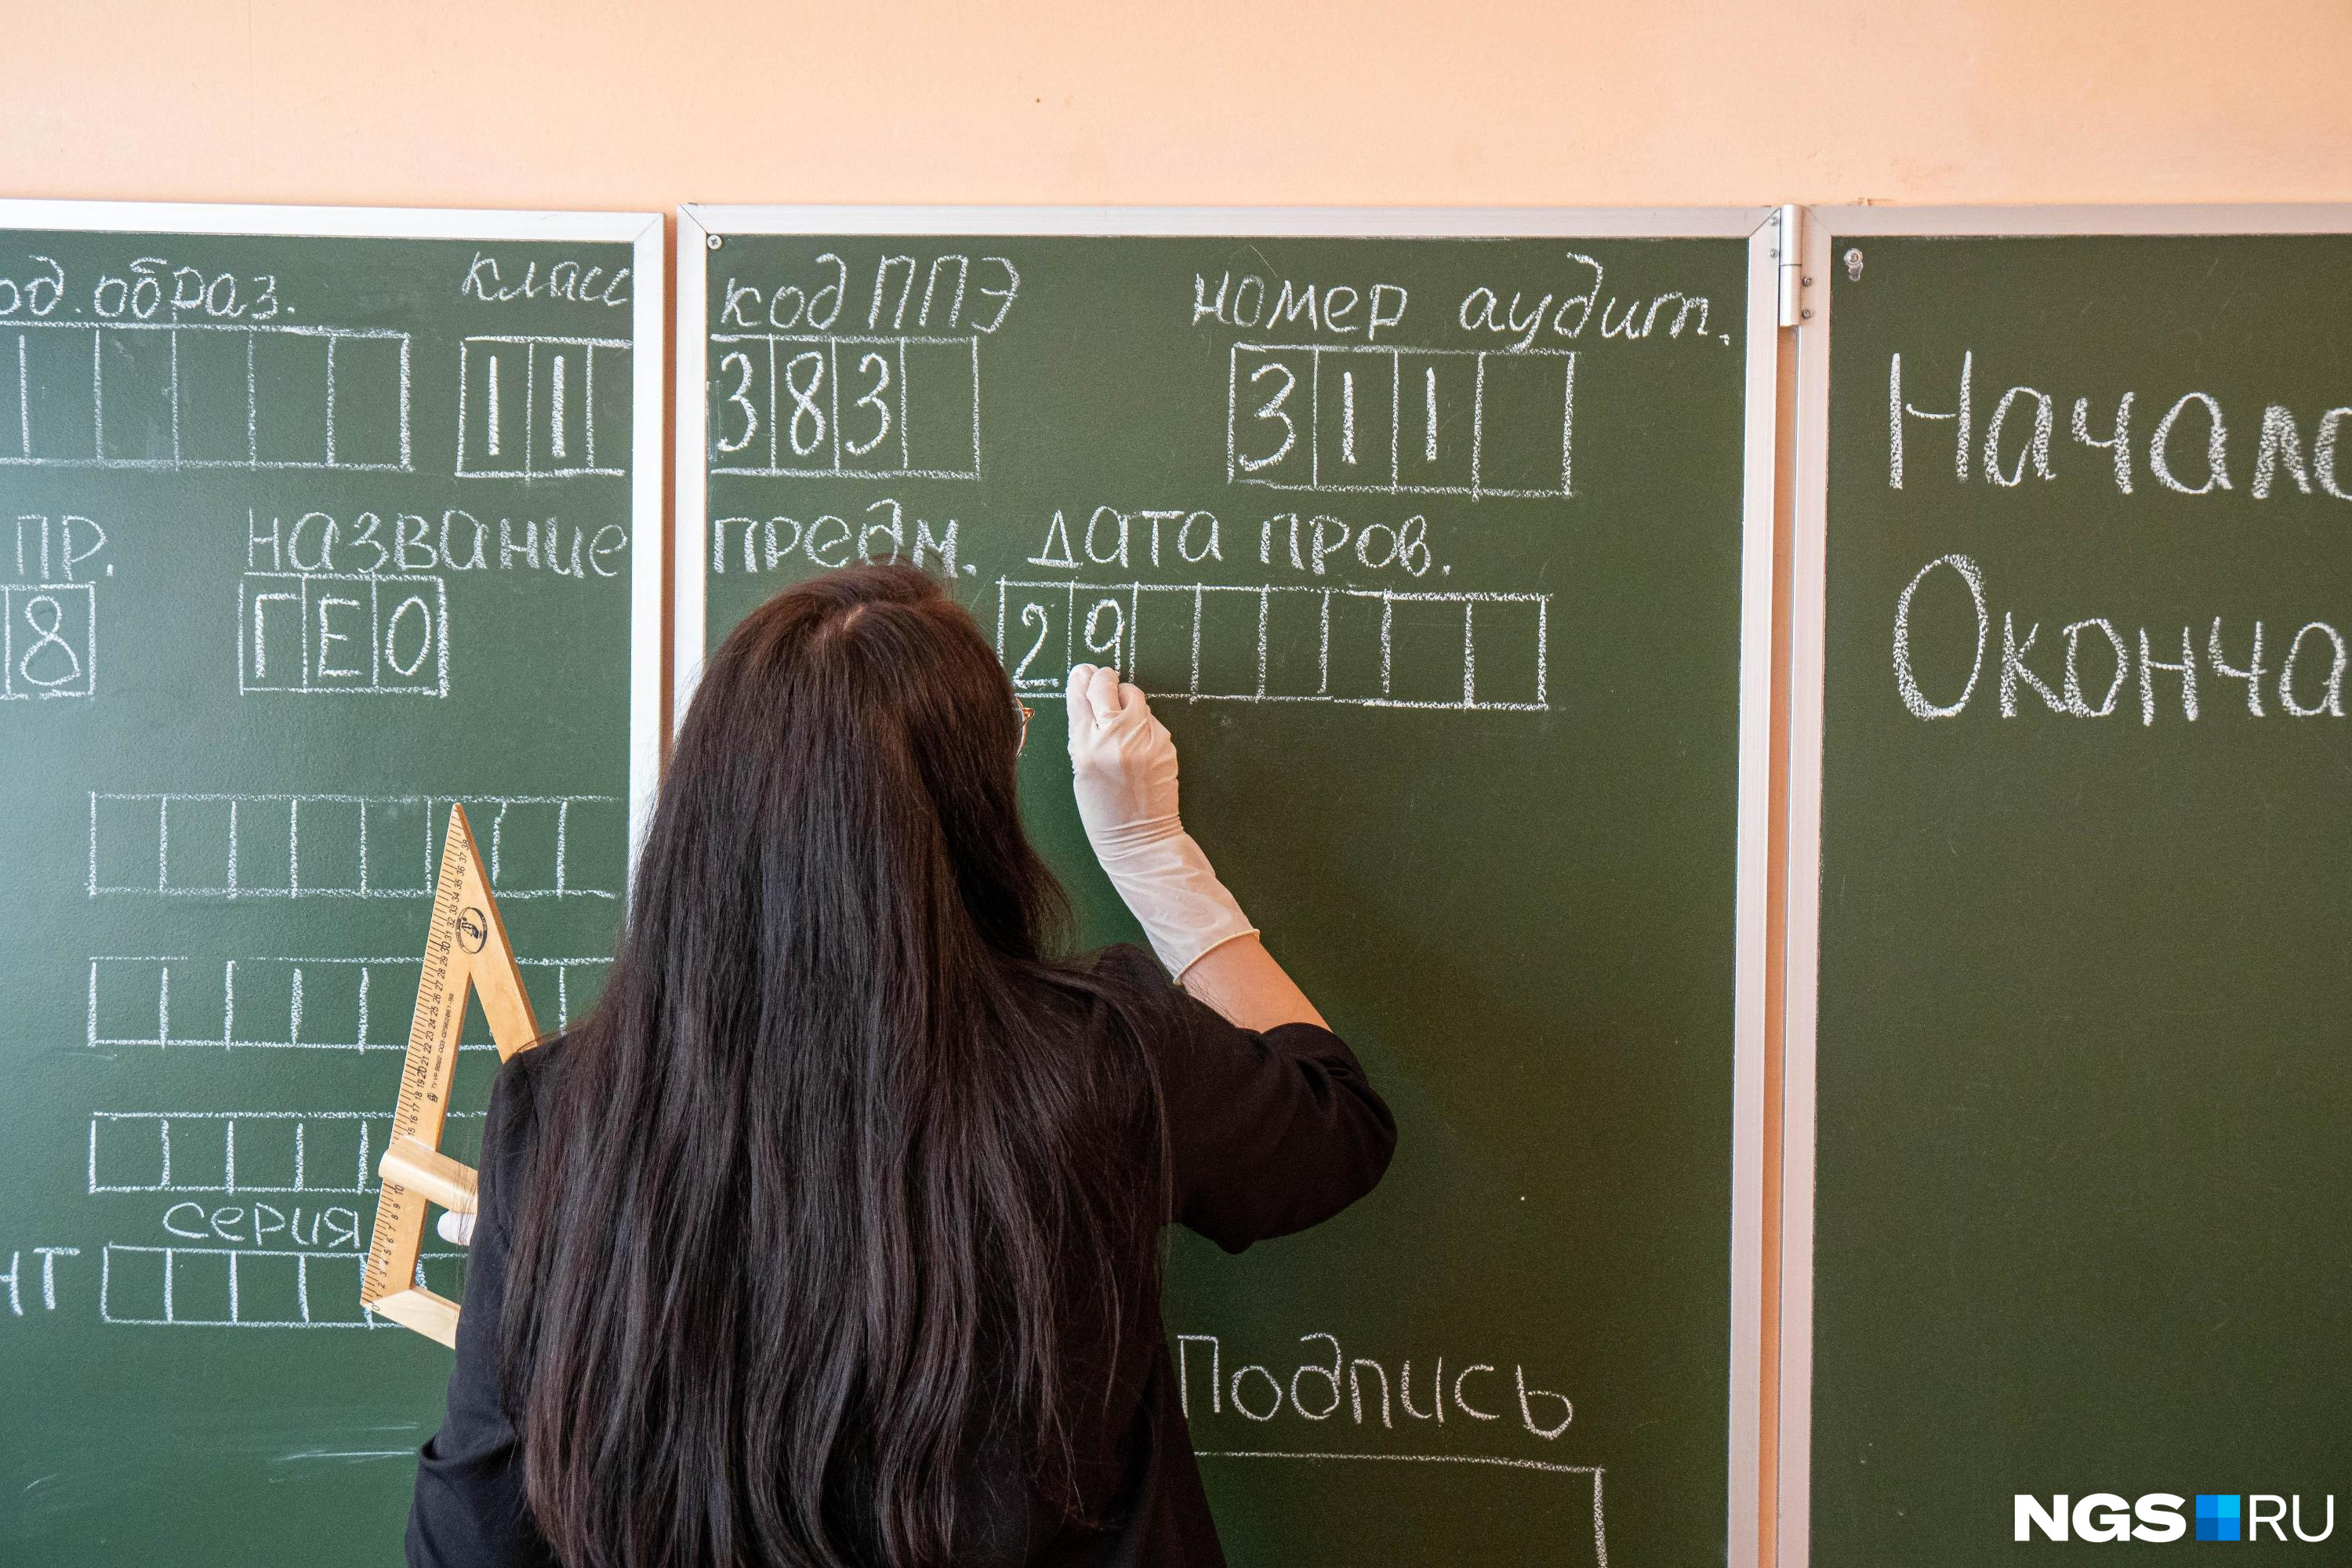 од. образ. класс
код ППЭ номер аудит.
11 383 311
Начало
ПР. название предм. дата пров.
8 ГЕО 29
Оконча
серия
НТ
Подпись
NGS RU